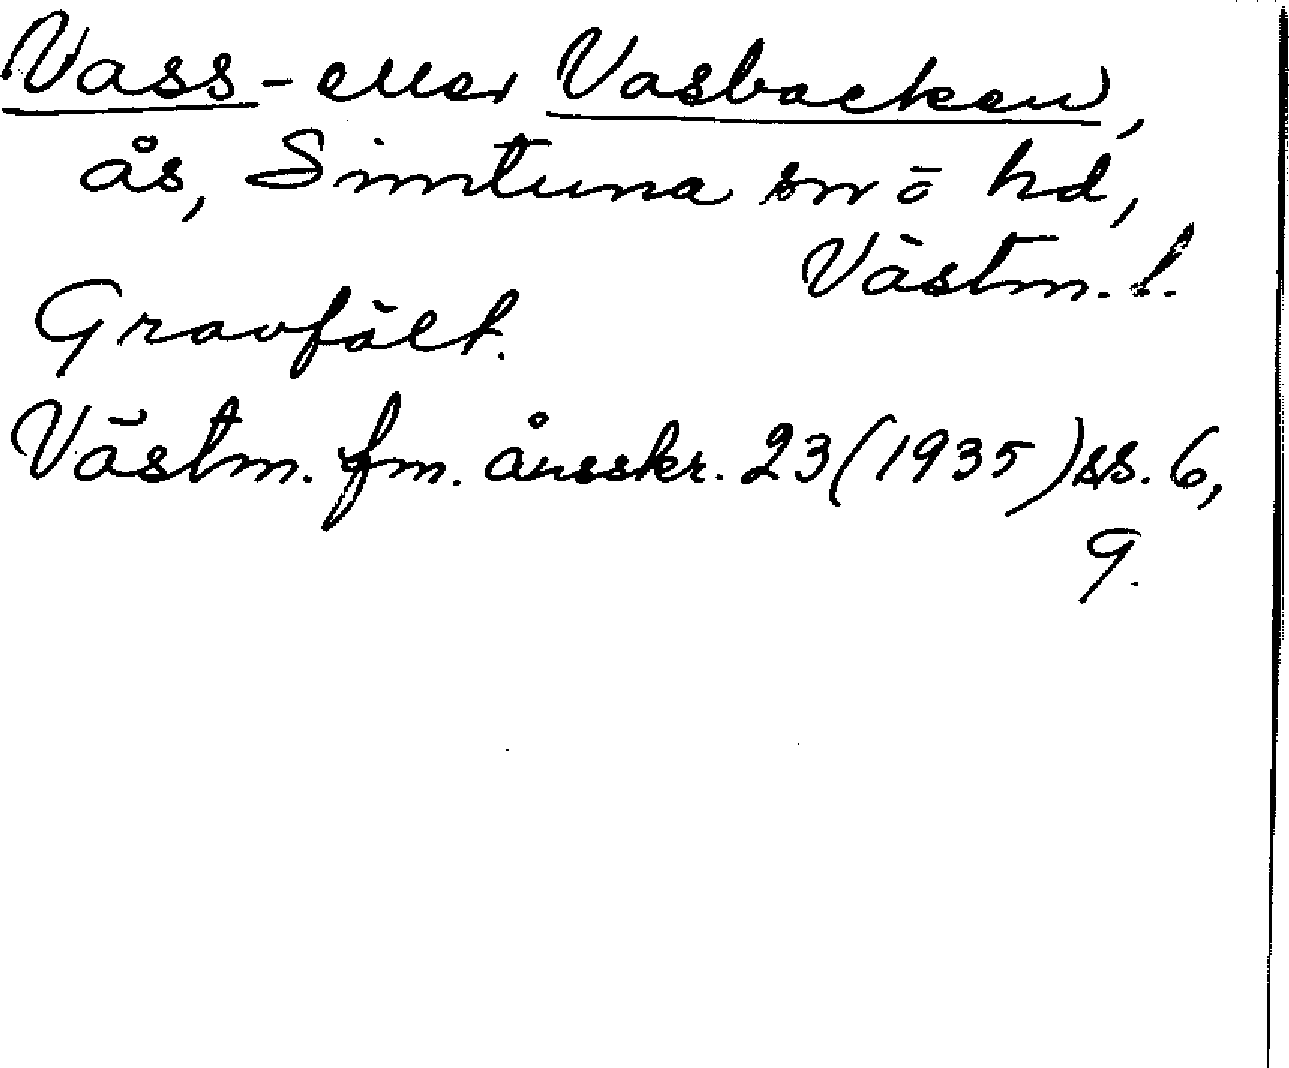 Vass- eller Vasbacken,
ås, Simtuna sn ō hd,
Västm. l.
Gravfält.
Västm. fm. årsskr. 23 (1935) ss. 6,
9.